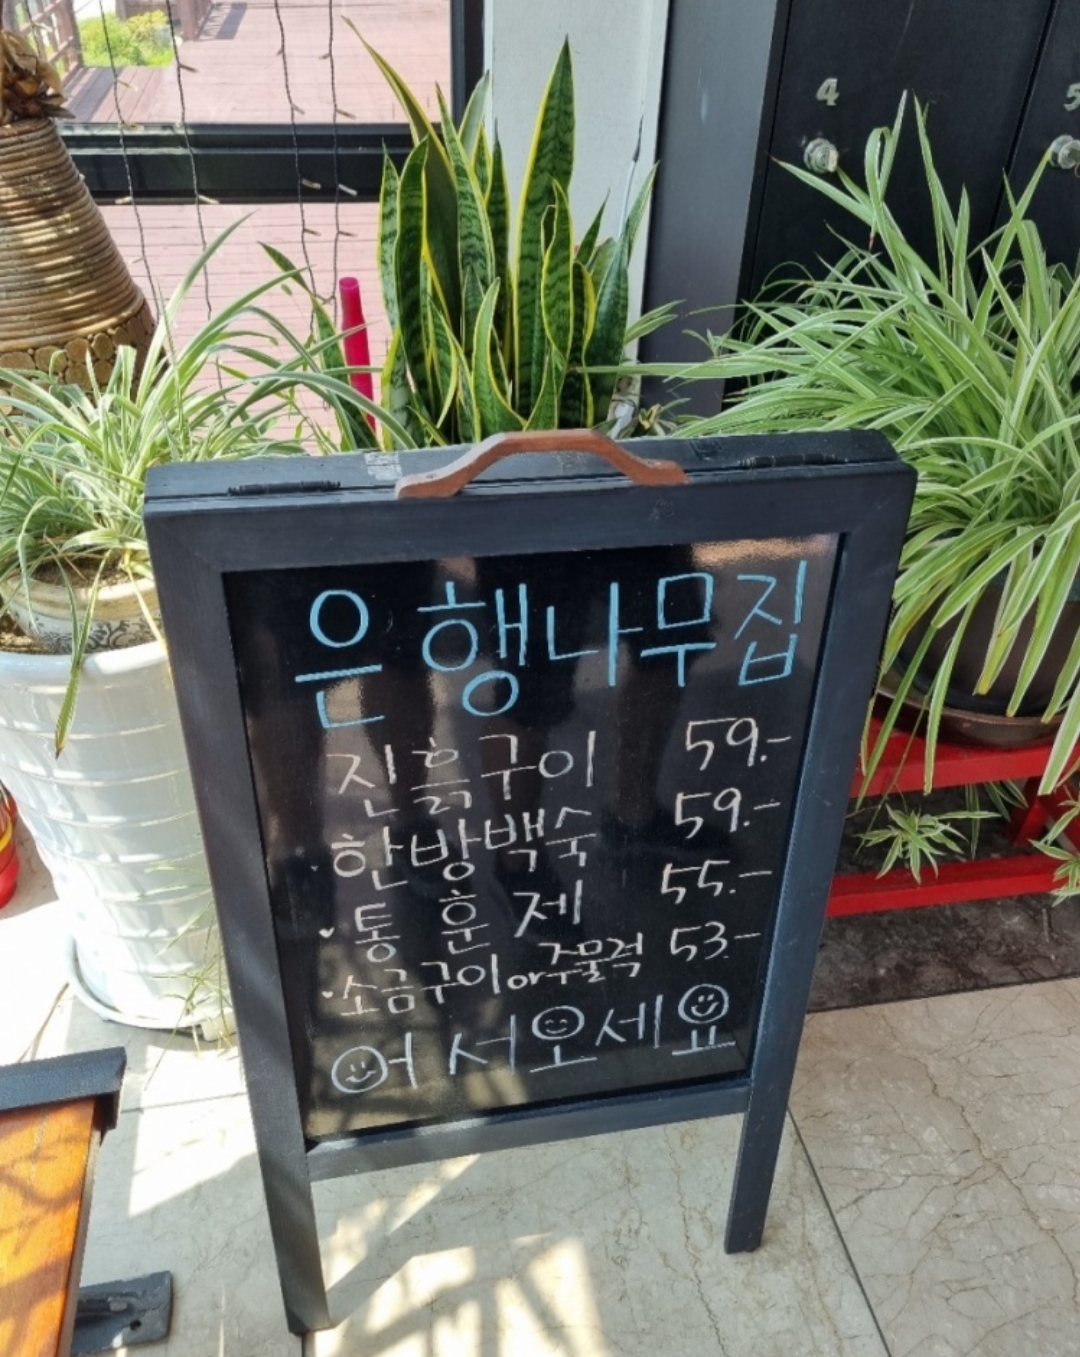 4
5
은행나무집
진흙구이 59.-
한방백숙 59.-
통훈제 55.-
소금구이or주물럭 53.-
어서오세요